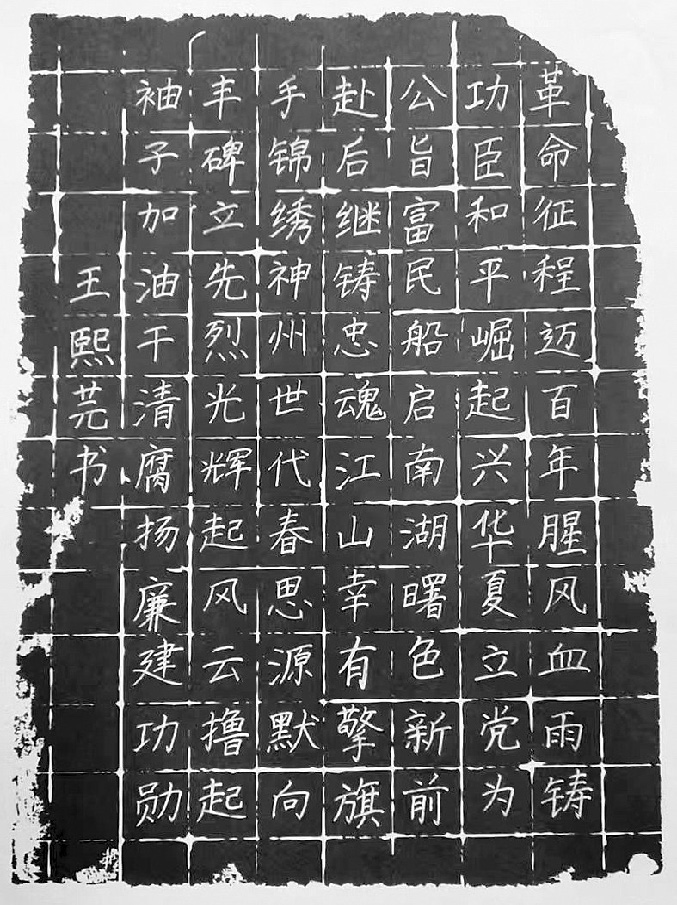 革命征程迈百年腥风血雨铸
功臣和平崛起兴华夏立党为
公旨富民船启南湖曙色新前
赴后继铸忠魂江山幸有擎旗
手锦绣神州世代春思源默向
丰碑立先烈光辉起风云撸起
袖子加油干清腐扬廉建功勋
王熙芫书